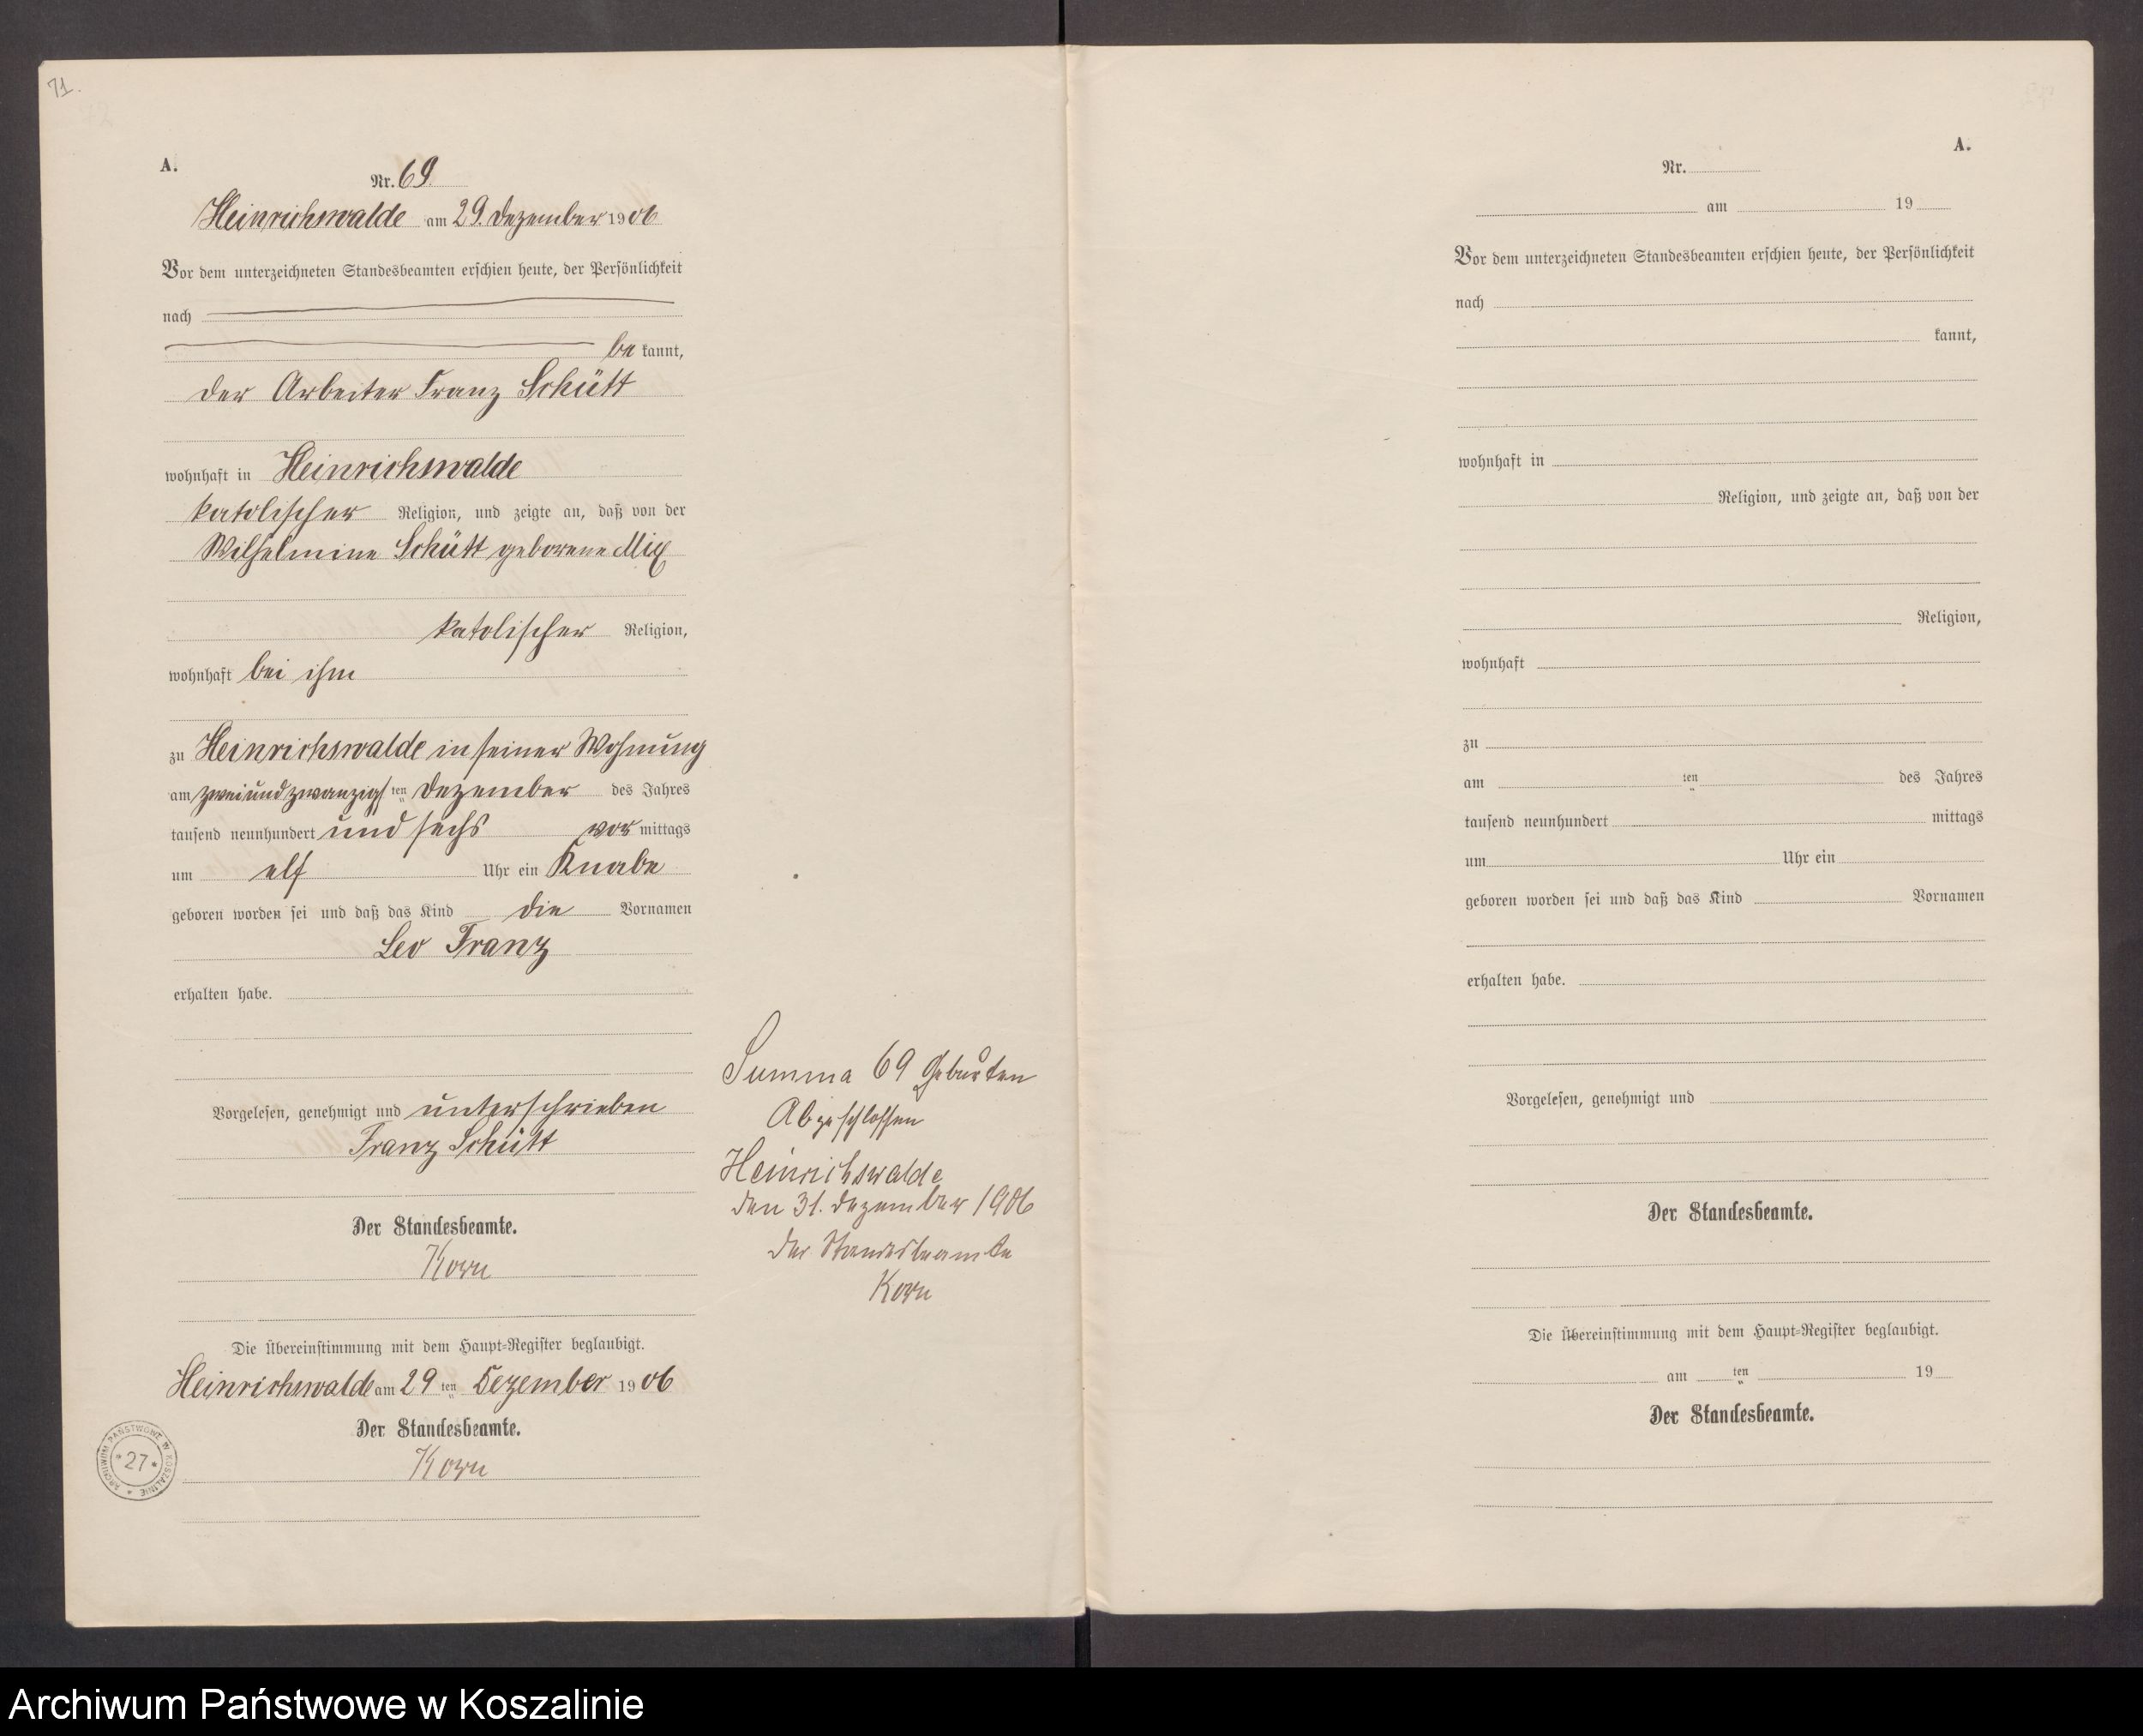 71.
A.
Nr. 69.
Heinrichswalde am 29. Dezember 1906
Vor dem unterzeichneten Standesbeamten erschien heute, der Persönlichkeit
nach
be kannt,
der Arbeiter Franz Schütt
wohnhaft in Heinrichswalde
katolischer Religion, und zeigte an, daß von der
Wilhelmine Schütt geborene Mix
katolischer Religion,
wohnhaft bei ihm
zu Heinrichswalde in seiner Wohnung
am zweiundzwanzigsten Dezember des Jahres
tausend neunhundert und sechs vor mittags
um elf Uhr ein Knabe
geboren worden sei und daß das Kind die Vornamen
Leo Franz
erhalten habe.
Vorgelesen, genehmigt und unterschrieben
Franz Schütt
Der Standesbeamte.
Korn
Die Übereinstimmung mit dem Haupt-Register beglaubigt.
Heinrichswalde am 29 ten Dezember 1906
Der Standesbeamte.
Korn
ARCHIWUM PAŃSTWOWE W KOSZALINIE
* 27 *
Summa 69 Geburten
Abgeschlossen
Heinrichswalde
den 31. Dezember 1906
Der Standesbeamte
Korn
A.
Nr.
am 19
Vor dem unterzeichneten Standesbeamten erschien heute, der Persönlichkeit
nach
kannt,
wohnhaft in
Religion, und zeigte an, daß von der
Religion,
wohnhaft
zu
am ten des Jahres
tausend neunhundert mittags
um Uhr ein
geboren worden sei und daß das Kind Vornamen
erhalten habe.
Vorgelesen, genehmigt und
Der Standesbeamte.
Die Übereinstimmung mit dem Haupt-Register beglaubigt.
am ten 19
Der Standesbeamte.
Archiwum Państwowe w Koszalinie